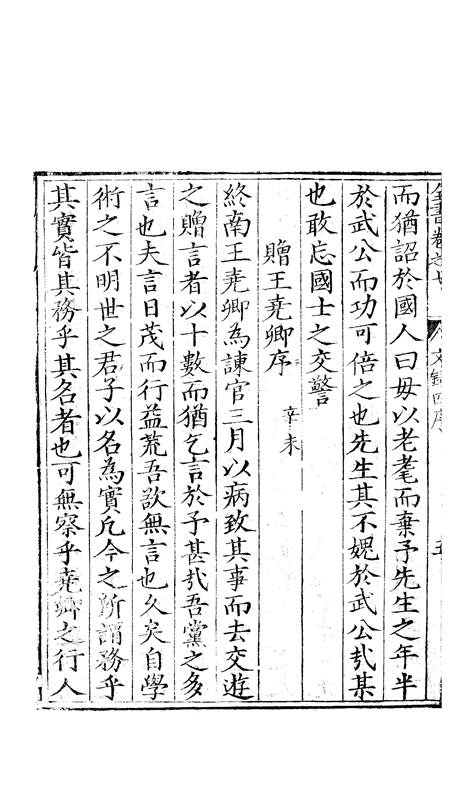 全書卷之七 文錄四序 五
而猶詔於國人曰毋以老耄而棄予先生之年半
於武公而功可倍之也先生其不媿於武公㢤某
也敢忘國士之交警
贈王堯卿序 辛未
終南王堯卿為諫官三月以病致其事而去交遊
之贈言者以十數而猶乞言於予甚㢤吾黨之多
言也夫言日茂而行益荒吾欲無言也久矣自學
術之不明世之君子以名為實凡今之所謂務乎
其實皆其務乎其名者也可無察乎堯卿之行人